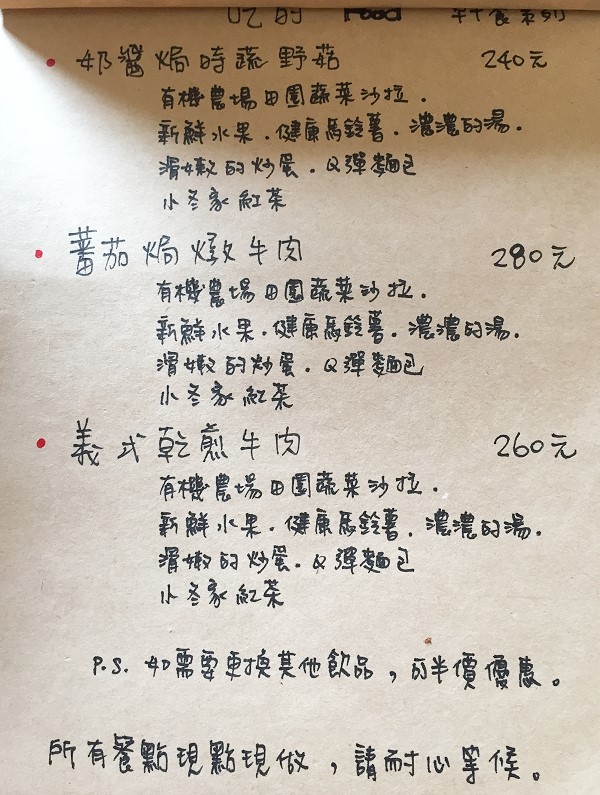 吃的 Food 早午食系列
奶醬焗時蔬野菇 240元
有機農場田園蔬菜沙拉.
新鮮水果.健康馬鈴薯.濃濃的湯.
滑嫩的炒蛋.Q彈麵包
小冬家紅茶
蕃茄焗燉牛肉 280元
有機農場田園蔬菜沙拉.
新鮮水果.健康馬鈴薯.濃濃的湯.
滑嫩的炒蛋.Q彈麵包
小冬家紅茶
義式乾煎牛肉 260元
有機農場田園蔬菜沙拉.
新鮮水果.健康馬鈴薯.濃濃的湯.
滑嫩的炒蛋.Q彈麵包
小冬家紅茶
P.S. 如需要更換其他飲品，可半價優惠。
所有餐點現點現做，請耐心等候。